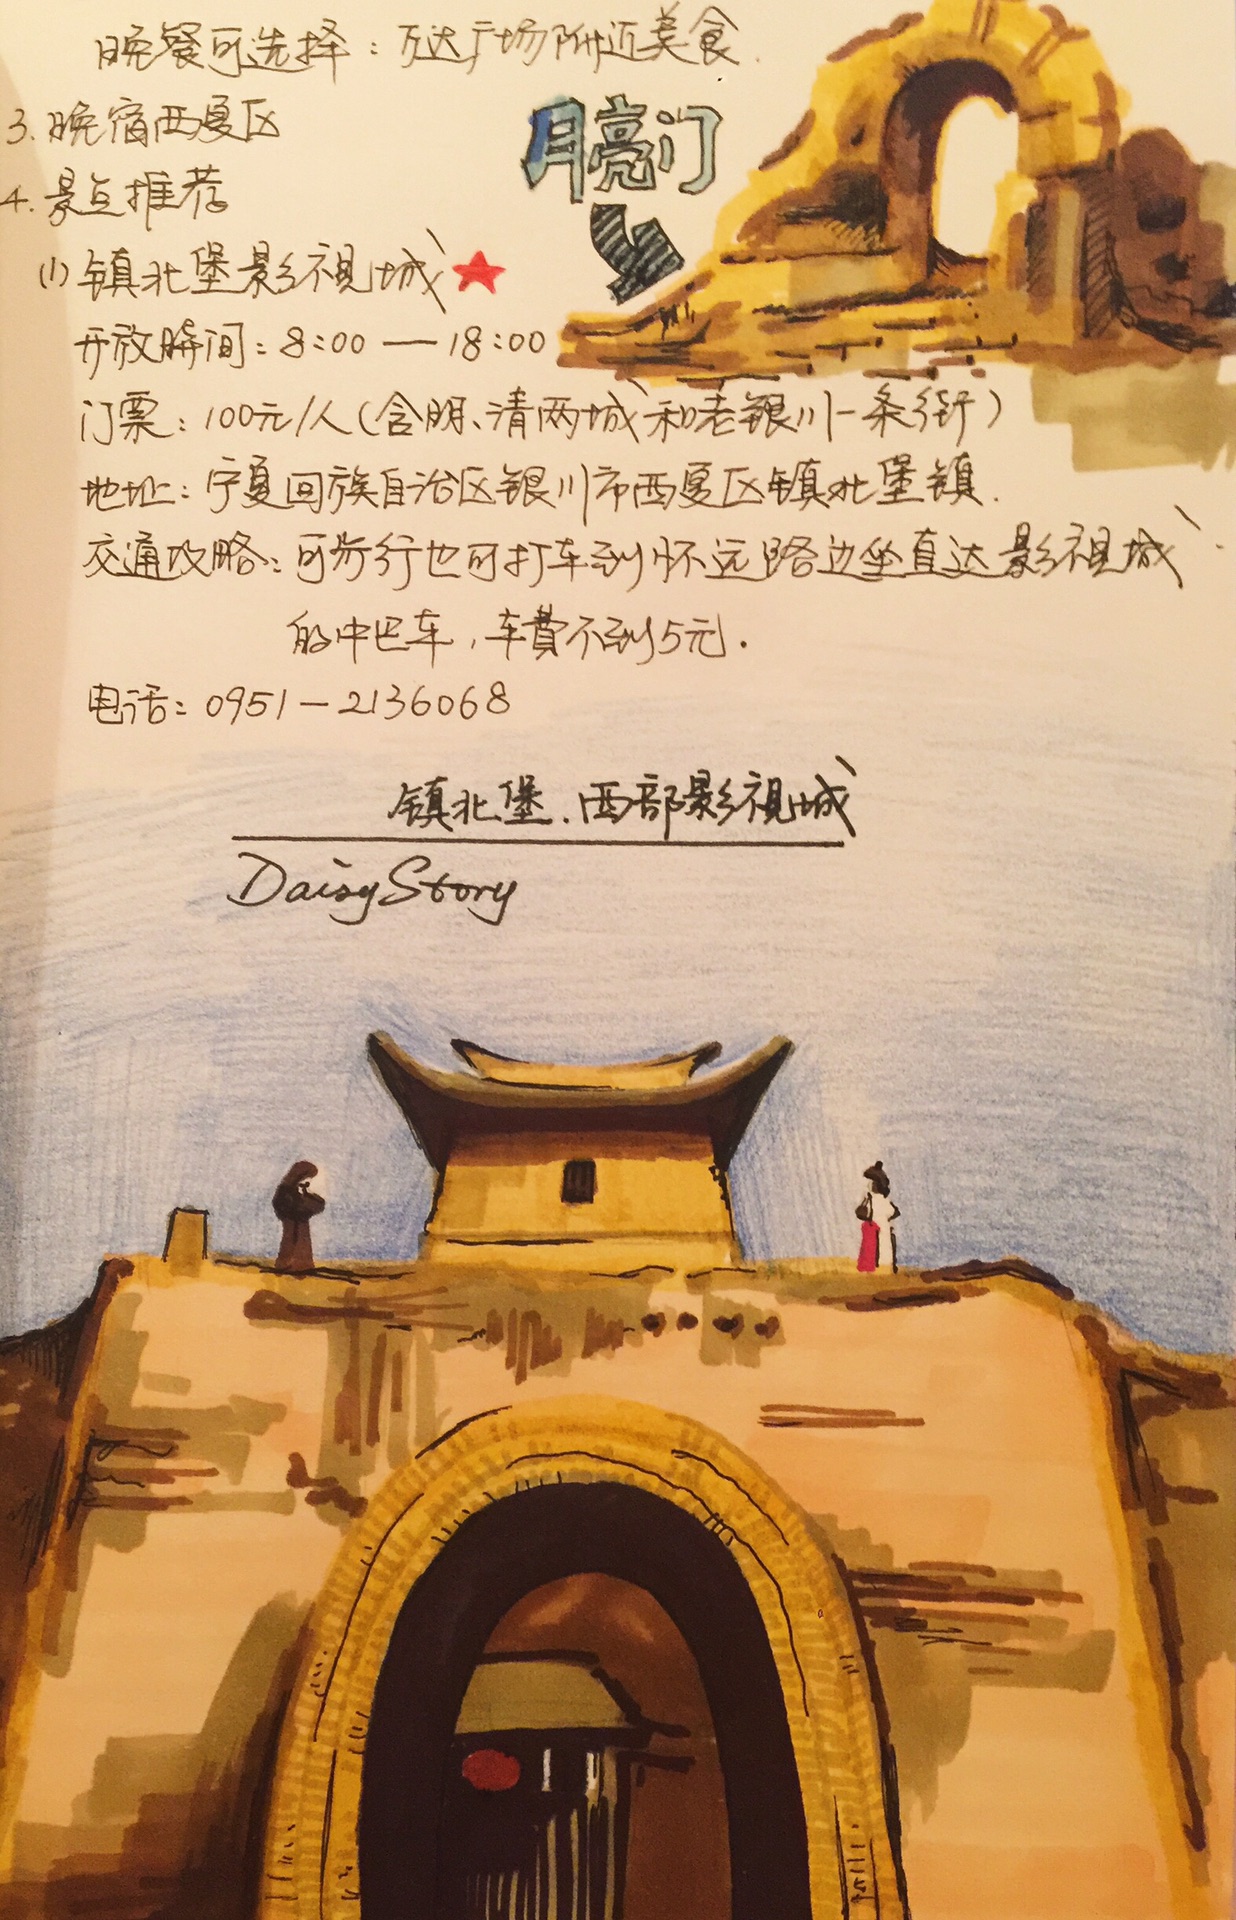 晚餐可选择：万达广场附近美食.
3. 晚宿西夏区
4. 景点推荐
(1) 镇北堡影视城
月亮门
开放时间：8:00 — 18:00
门票：100元/人(含明、清两城和老银川一条街)
地址：宁夏回族自治区银川市西夏区镇北堡镇.
交通攻略：可步行也可打车到怀远路边坐直达影视城
的中巴车，车费不到5元.
电话：0951-2136068
镇北堡.西部影视城
Daisy Story